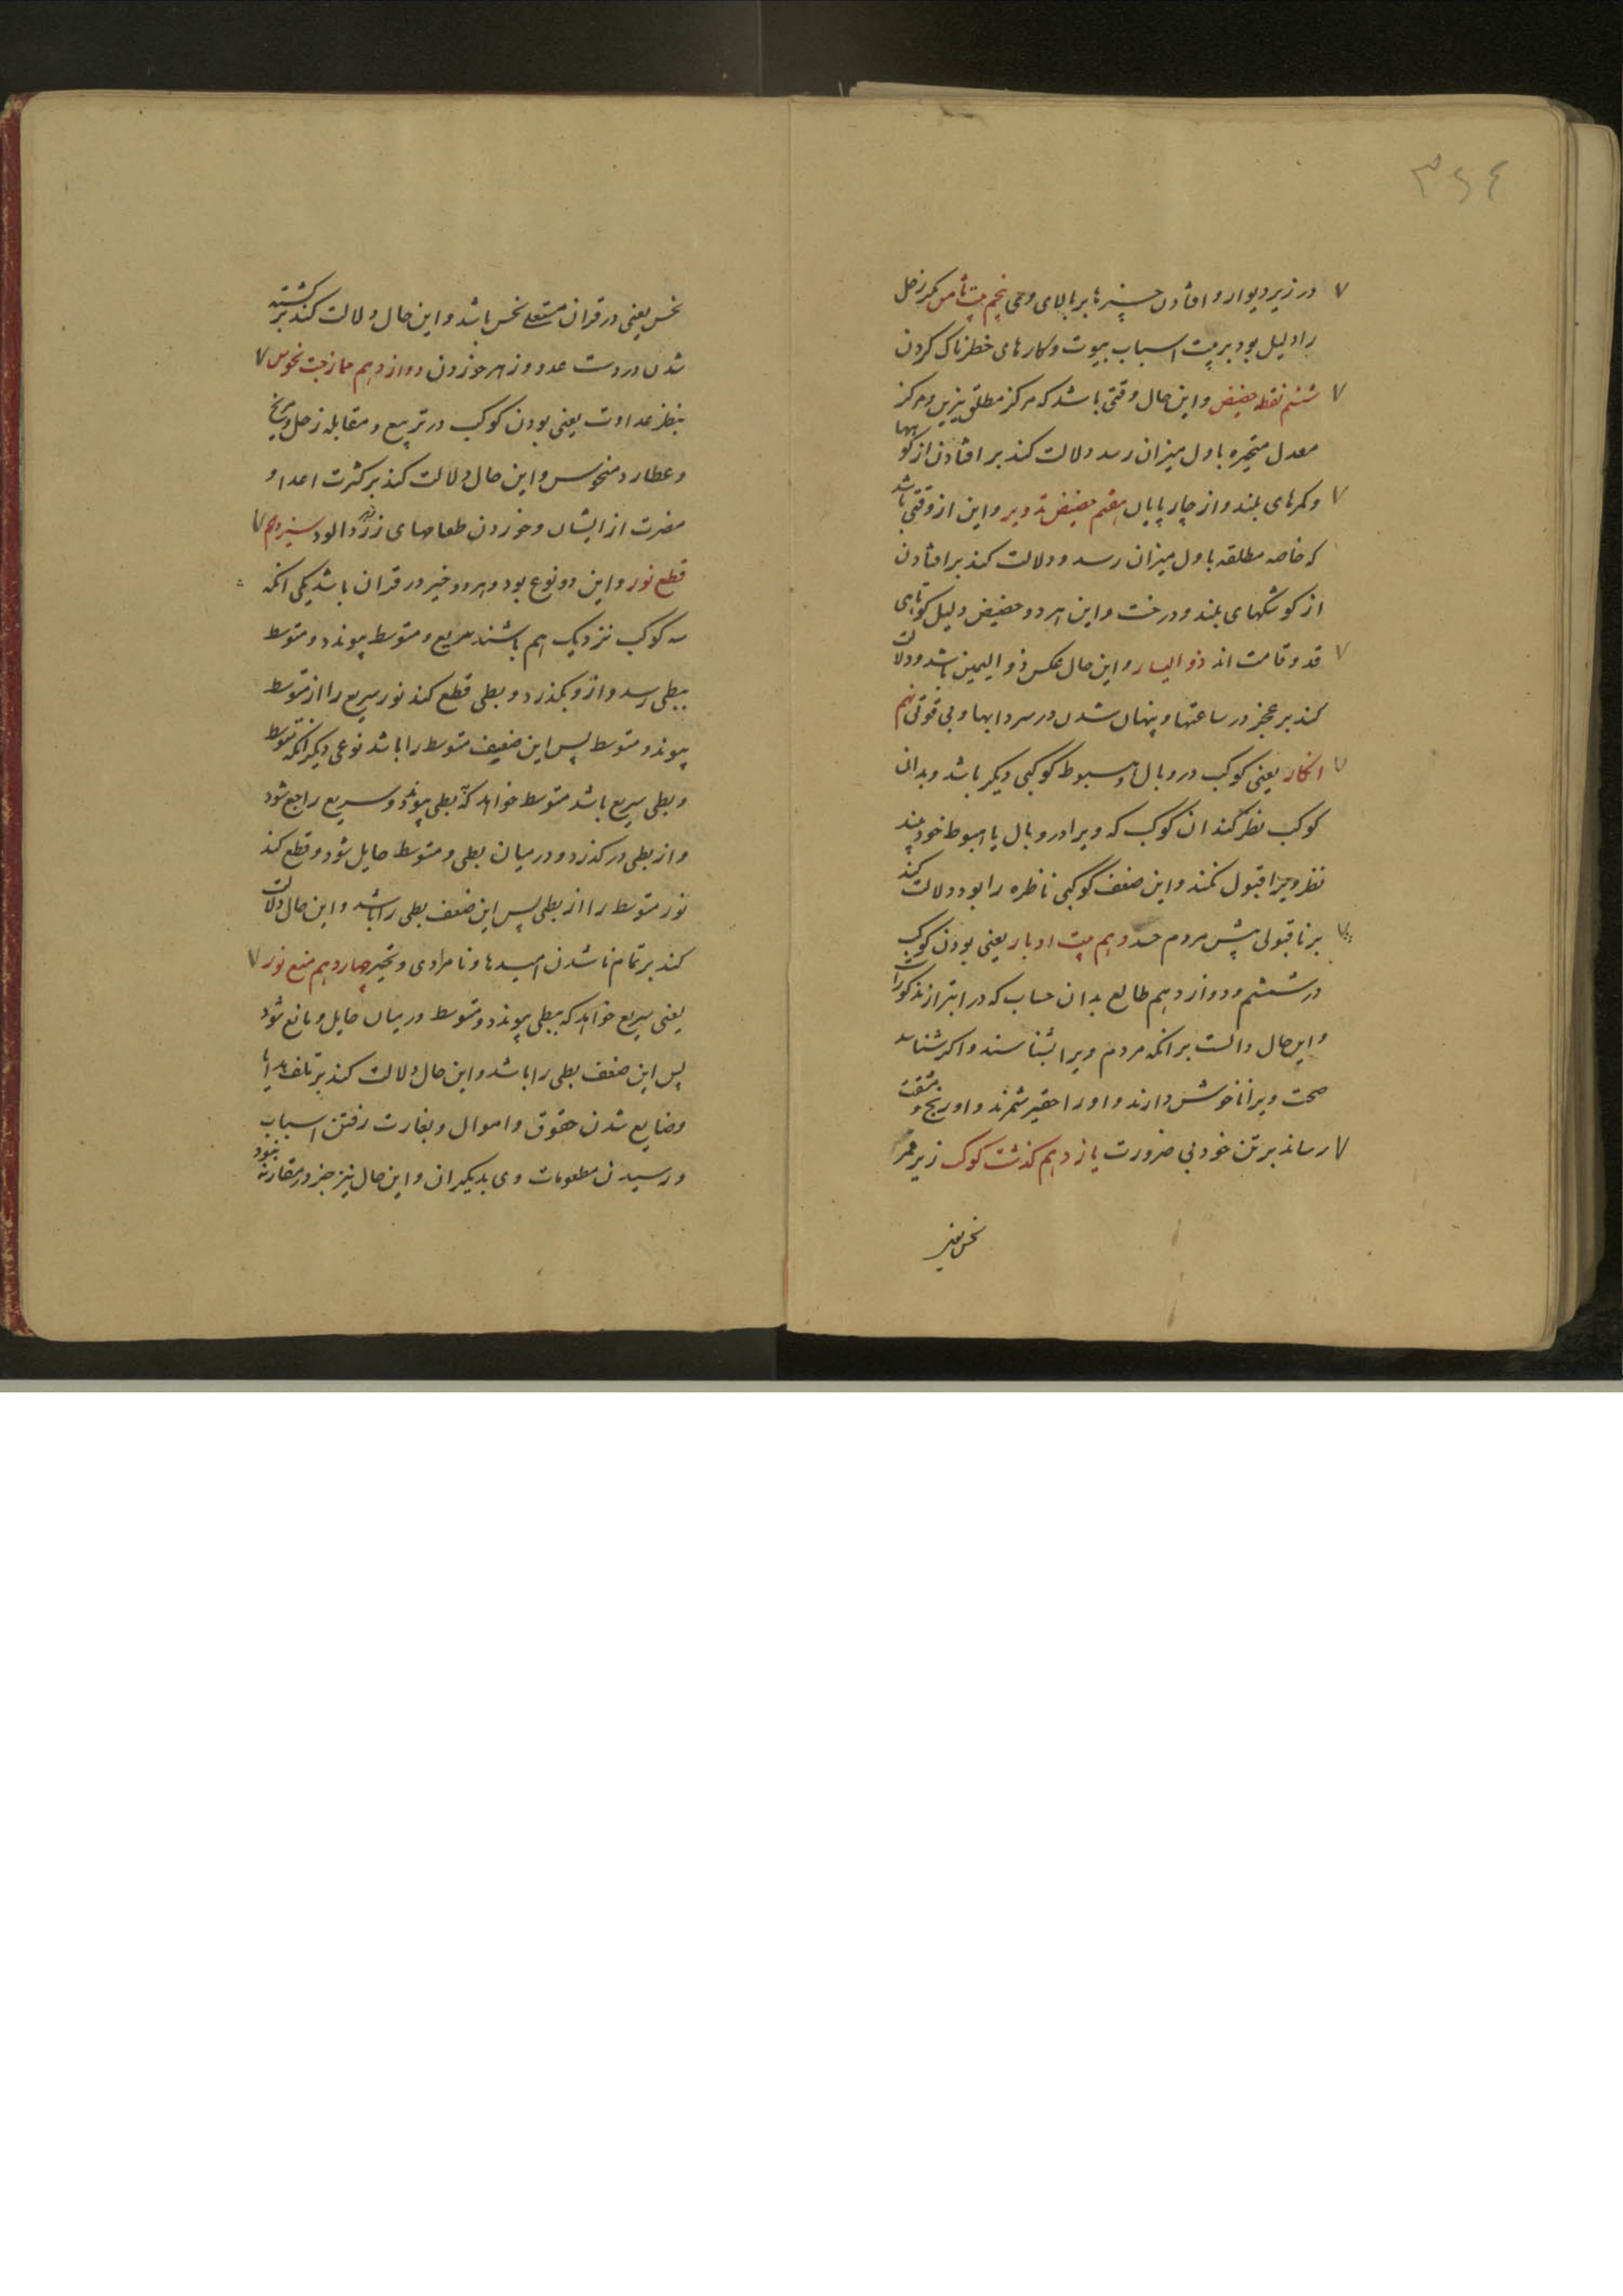 ٣٤٤
در زیر دیوار و افتادن چیزها بر بالای وی پنجم بیت ثامن مکر زحل
را دلیل بود بر بیت اسباب بیوت و کارهای خطرناک کردن
ششم نقطه حضیض و این حال وقتی باشد که مرکز مطلق نیرین و مرکز
معدل متحیره باول میزان رسد دلالت کند بر افتادن از کوهها
و کمرهای بلند و از چارپایان هفتم حضیض تدویر و این از وقتی باشد
که خاصه مطلقه باول میزان رسد و دلالت کند بر افتادن
از کوشکهای بلند و درخت و این هر دو حضیض دلیل کوتاهی
قد و قامت اند ذو الیسار و این حال عکس ذو الیمین باشد و دلالت
کند بر عجز در ساعتها و پنهان شدن در سردابها و بی قوتی نهم
انکار یعنی کوکب در وبال و هبوط کوکبی دیکر باشد و بدان
کوکب نظر کند ان کوکب که ویرا در وبال یا هبوط خود بیند
نظر ویرا قبول نکند و این ضعف کوکبی ناظره را بود و دلالت کند
بر ناقبولی پیش مردم حسد دهم بیت ادبار یعنی بودن کوکب
در ششم و دوازدهم طالع بدان حساب که در ابتر از مذکورات
و این حال دالست بر انکه مردم ویرا نشناسند و اکر شناسند
صحبت ویرا ناخوش دارند و او را حقیر شمرند و او رنج و مشقت
رساند بر تن خود بی ضرورت یازدهم کذشت کوکب زیر ممر
نحس یعنی
نحس یعنی در قران مستعلی نحس باشد و این حال دلالت کند بر کشته
شدن در دست عدو و زهر خوردن دوازدهم ممازجت نحوس
بنظر عداوت یعنی بودن کوکب در تربیع و مقابله زحل و مریخ
و عطارد منحوس و این حال دلالت کند بر کثرت اعدا و
مضرت از ایشان و خوردن طعامهای زهر الود سیزدهم
قطع نور و این دو نوع بود و هر دو خیر در قران باشد یکی انکه
سه کوکب نزدیک هم باشند سریع و متوسط پیوندد و متوسط
ببطی رسد و ازو بکذرد و بطی قطع کند نور سریع را از متوسط
پیوند و متوسط پس این ضعیف متوسط را باشد نوعی دیکر انکه متوسط
و بطی سریع باشد متوسط خواهد که بطی پیوندد و سریع راجع شود
و از بطی در کذرد و در میان بطی و متوسط حایل شود و قطع کند
نور متوسط را از بطی پس این ضعف بطی را باشد و این حال دلالت
کند بر تمام ناشدن امیدها و نامرادی و تحیر چهاردهم منع نور
یعنی سریع خواهد که ببطی پیوندد و متوسط در میان حایل و مانع شود
پس این ضعف بطی را باشد و این حال دلالت کند بر تلف
و ضایع شدن حقوق و اموال و بغارت رفتن اسباب
و رسیدن مطعومات وی بدیکران و این حال نیز جز در مقارنه نبود